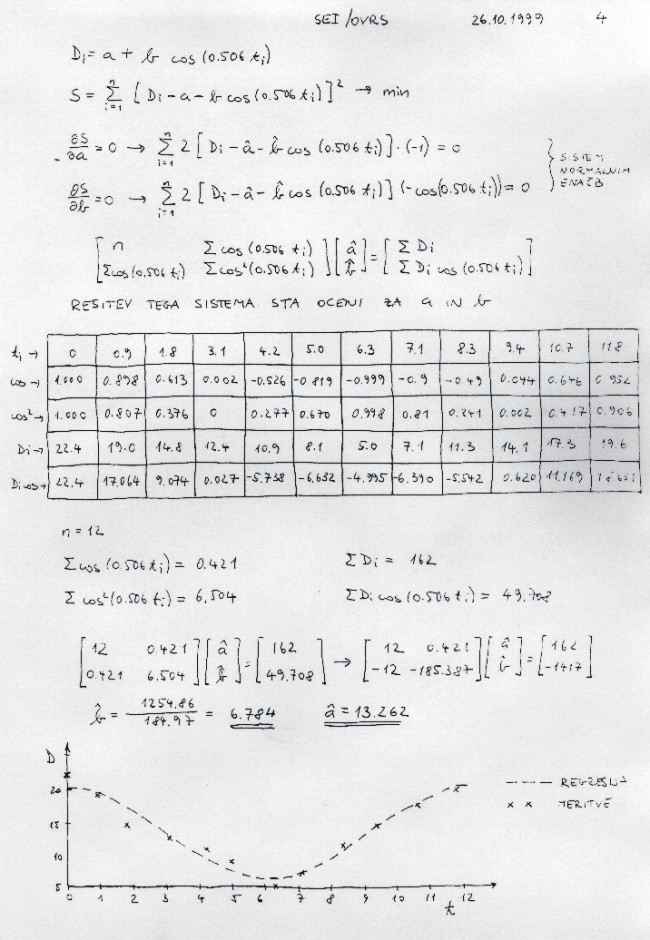 SEI/OVRS 26.10.1999 4
Di = a + b cos(0.506 ti)
S = Σ_{i=1}^{n} [Di - a - b cos(0.506 ti)]² → min
∂S/∂a = 0 → Σ_{i=1}^{n} 2 [Di - â - b̂ cos(0.506 ti)]·(-1) = 0
∂S/∂b = 0 → Σ_{i=1}^{n} 2 [Di - â - b̂ cos(0.506 ti)] (-cos(0.506 ti)) = 0
} SISTEM
NORMALNIH
ENAČB
[n Σcos(0.506 ti)] [â] = [ΣDi]
[Σcos(0.506 ti) Σcos²(0.506 ti)] [b̂] [ΣDi cos(0.506 ti)]
REŠITEV TEGA SISTEMA STA OCENI ZA a IN b
ti → 0 0.9 1.8 3.1 4.2 5.0 6.3 7.1 8.3 9.4 10.7 11.8
cos → 1.000 0.898 0.613 0.002 -0.526 -0.819 -0.999 -0.9 -0.49 0.044 0.646 0.952
cos² → 1.000 0.807 0.376 0 0.277 0.670 0.998 0.81 0.241 0.002 0.417 0.906
Di → 22.4 19.0 14.8 12.4 10.9 8.1 5.0 7.1 11.3 14.1 17.3 19.6
Di cos → 22.4 17.064 9.074 0.027 -5.738 -6.632 -4.995 -6.390 -5.542 0.620 11.169
n = 12
Σcos(0.506 ti) = 0.421 ΣDi = 162
Σcos²(0.506 ti) = 6,504 ΣDi cos(0.506 ti) = 49,708
[12 0.421] [â] = [162] → [12 0.421] [â] = [162]
[0.421 6.504] [b̂] [49.708] [-12 -185.387] [b̂] [-1417]
b̂ = 1254.86 / 184.97 = 6.784 â = 13.262
D
20
15
10
5
0 1 2 3 4 5 6 7 8 9 10 11 12
t
--- REGRESIJA
x x MERITVE